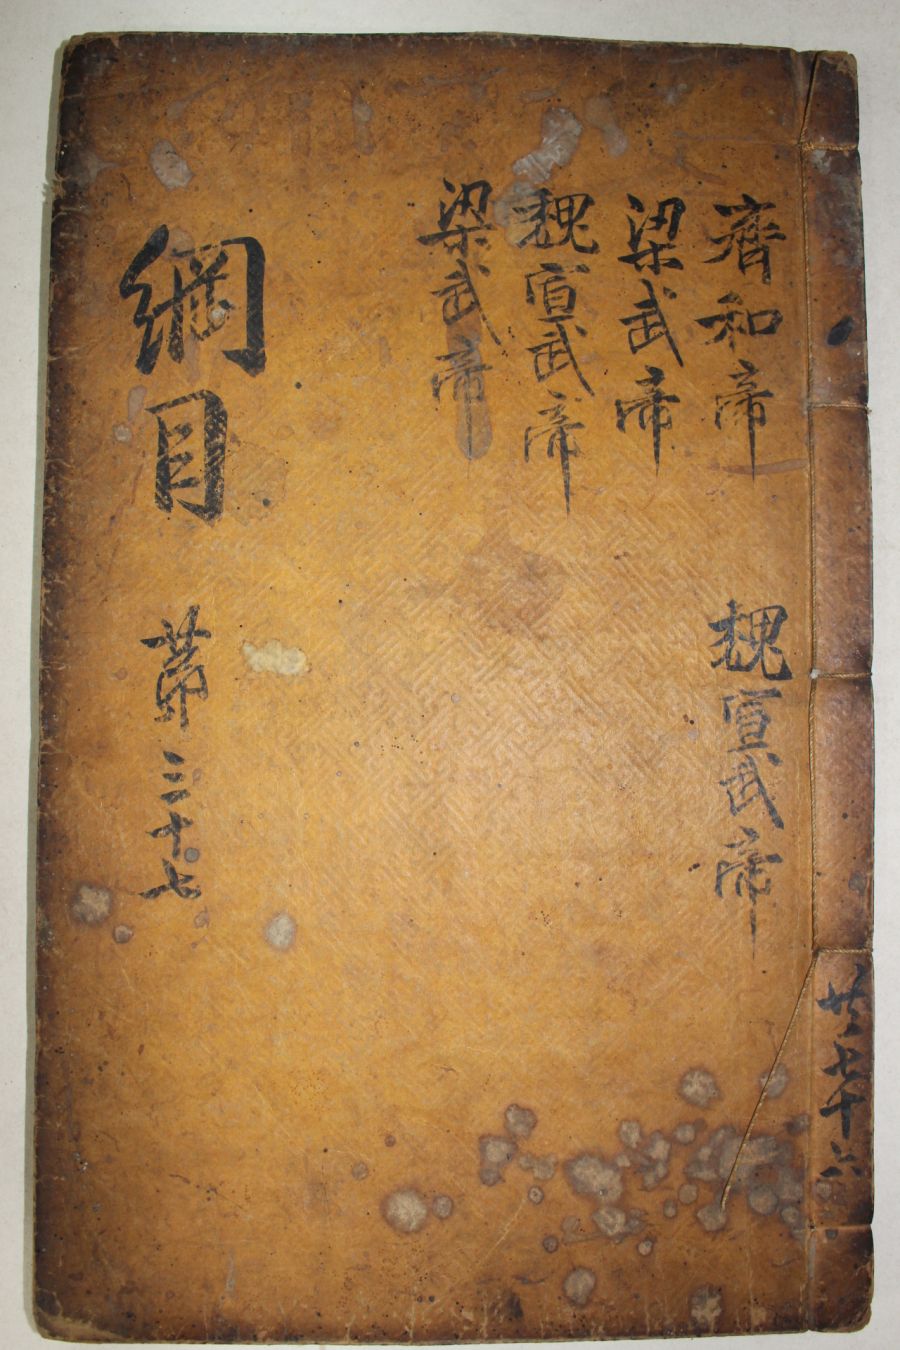 共七十六
齊和帝 魏宣武帝
梁武帝
魏宣武帝
梁武帝
綱目 第三十七